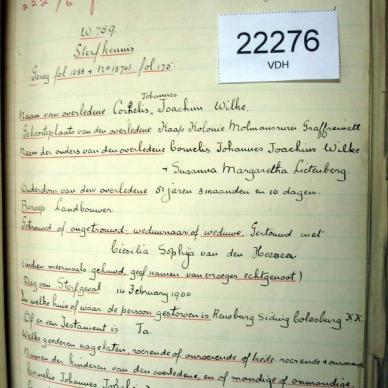 22276
VDH
W 759.
Sterfkennis
Gereg fol 1288 & No 13761 fol 175.
Johannes
Naam van overledene Cornelis, Joachim Wilke.
Geboorteplaat van den overledene Kaap Kolonie Molmansrivier Graffreinett
Namen der ouders van den overledene Cornelis Johannes Joachim Wilke
& Susanna Margaretha Lietenberg.
Ouderdom van den overledene 51 jaren 3 maanden en 10 dagen.
Beroep Landbouwer.
Getrouwd of ongetrouwd: weduwnaar of weduwe. Getrouwd met
Ciesilia Sophija van den
(indien meermaals gehuwd, geef namen van vroeger echtgenoot)
Dag van Sterfgeval 14 February 1900
In welke huis of waar de persoon gestorven is Rensburg Siding Colesburg K.K.
Of er een Testament is Ja.
Welke goederen nagelaten, roerende of onroerende of beide roerende & onroerende
Namen der kinderen van den overledene, en of mondige of onmondige.
Cornelis Johannes